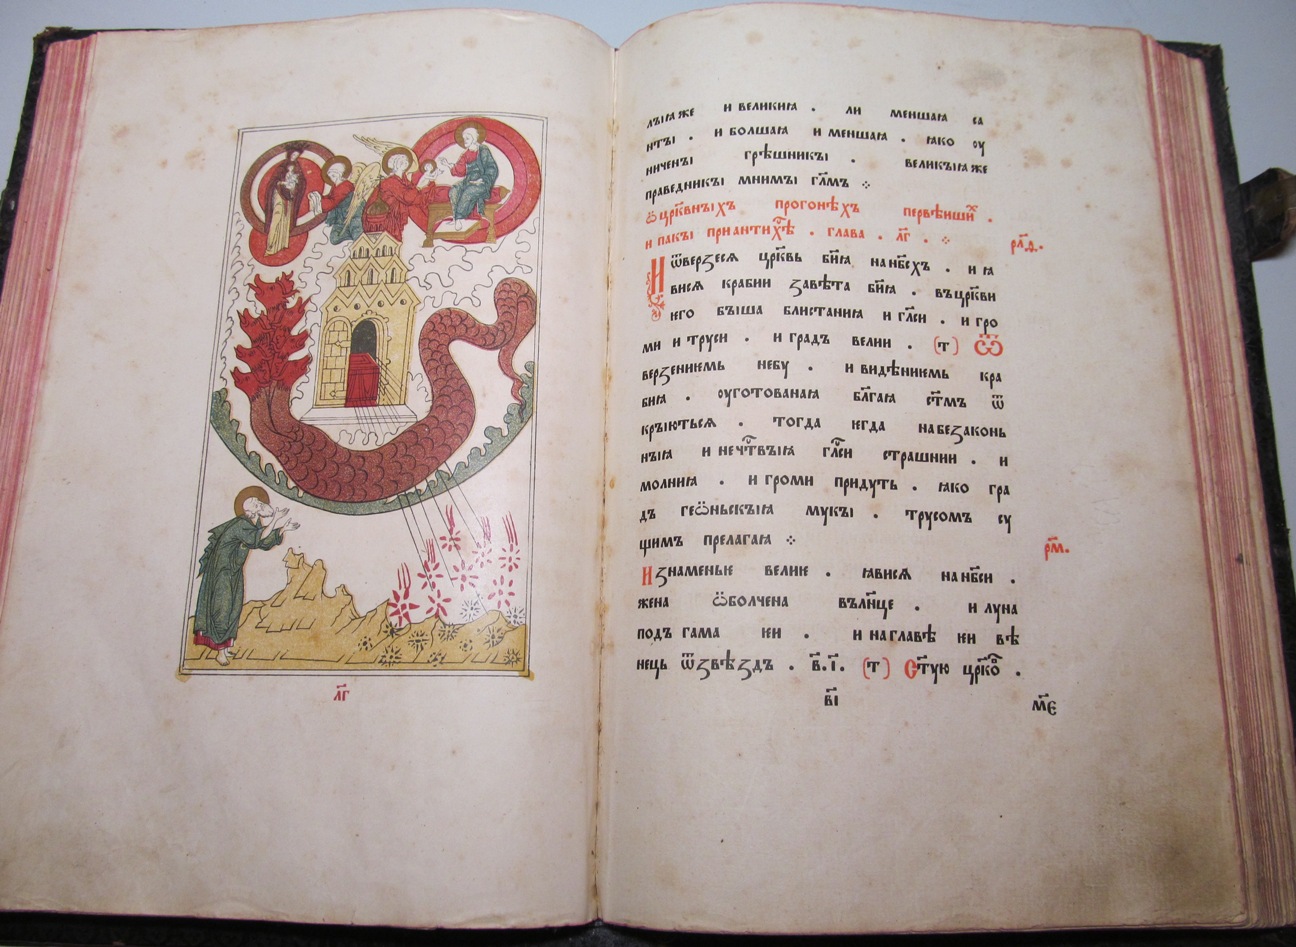 л҃г
лъıꙗже и великиꙗ . ли меншаꙗ са
нтъı . и болшаꙗ и меншаꙗ . ꙗко оу
ниченъı грѣшникъı . великъıꙗже
праведникъı мнимъı гл҃мъ ⁘
ѿ цр҃квнъıхъ прогонѣхъ первѣиших .
и пакъı при антихс҃ѣ . глава . л҃г . ⁘
рл҃д.
И ѿверзесѧ цр҃квь бж҃иꙗ на нб҃схъ . и ꙗ
висѧ крабии завѣта бж҃иꙗ . въ цр҃кви
ѥго бъıша блистаниꙗ и гл҃си . и гро
ми и труси . и градъ велии . (т) Ѿ
верзениѥмь небу . и видѣниѥмь кра
биꙗ . оуготованаꙗ бл҃гаꙗ ст҃мъ ѿ
крыютьсѧ . тогда ѥгда на безаконь
нъıꙗ и нечт҃въıꙗ гл҃си страшнии . и
молниꙗ . и громи придуть . ꙗко гра
дъ геѡньскъıꙗ мукъı . трусомъ су
щимъ прелагаꙗ ⁘
рм҃.
И знаменьѥ велиѥ . ꙗвисѧ на нб҃си .
жена ѡболчена въ сл҃нце . и луна
подъ нагама ѥи . и на главѣ ѥи вѣ
нець ѿ звѣздъ . в҃.і҃. (т) Ст҃ую цр҃ко҃в .
в҃і
м҃е